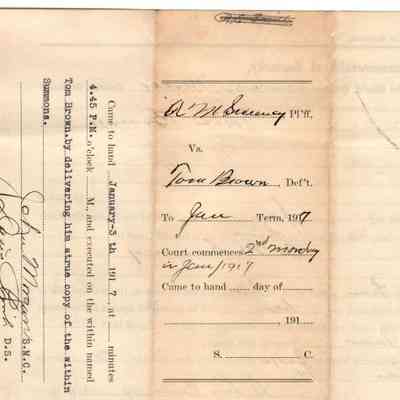 A M Sweeney Pl'ff,
Vs.
Tom Brown, Def't.
To Jan Term, 1917
Court commences 2nd Monday
in Jan/1917
Came to hand ...... day of
191
S. C.
Came to hand January-3 th 191 7, at minutes
4.45 P.M. o'clock M., and executed on the within named
Tom Brown.by delivering him atrue copy of the within
Summons.
John Morgan S.M.C.
D.S.